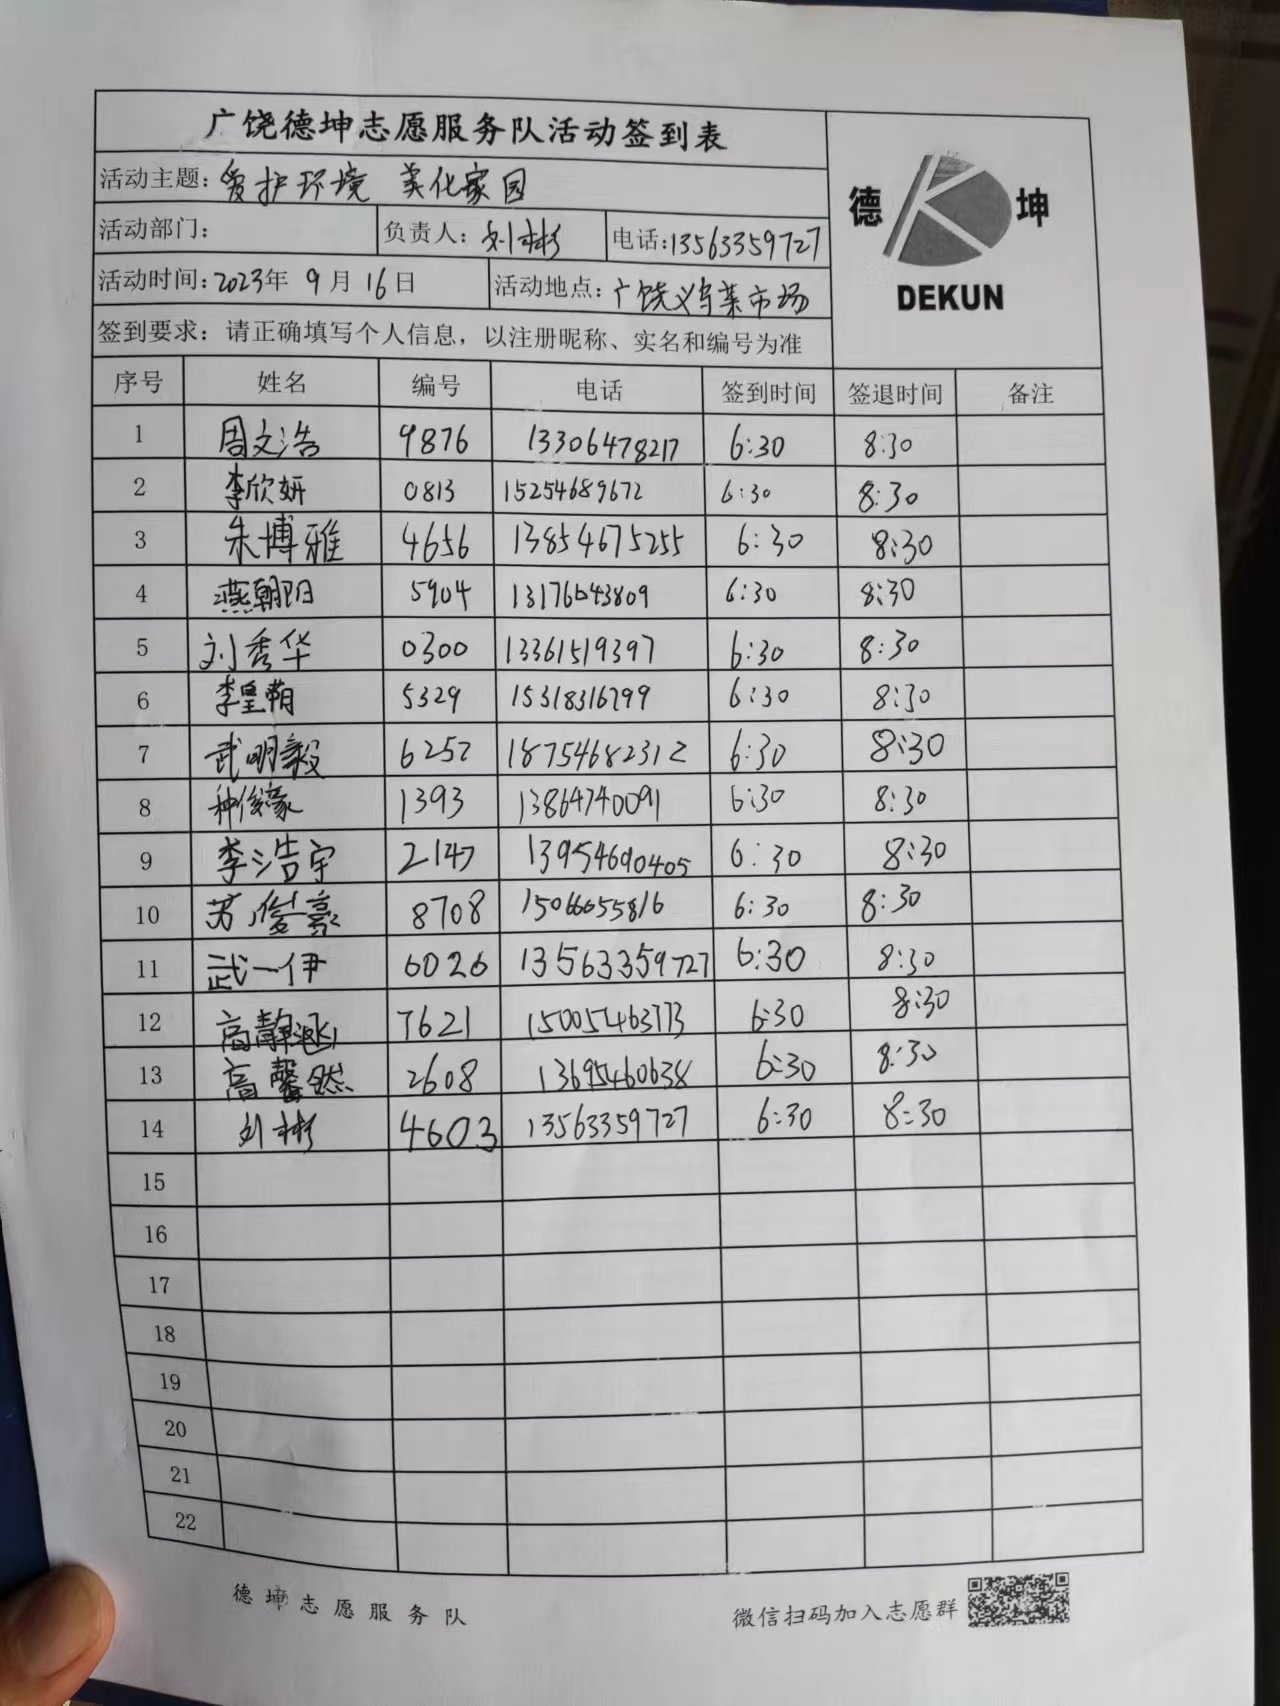 广饶德坤志愿服务队活动签到表
活动主题：爱护环境 美化家园
活动部门： 负责人：刘彬 电话：13563359727
活动时间：2023年 9月16日 活动地点：广饶义乌菜市场
签到要求：请正确填写个人信息，以注册昵称、实名和编号为准
德 坤
DEKUN
序号 姓名 编号 电话 签到时间 签退时间 备注
1 周文浩 9876 13306478217 6:30 8:30
2 李欣妍 0813 15254689672 6:30 8:30
3 朱博雅 4656 13854675255 6:30 8:30
4 燕朝阳 5904 13176043809 6:30 8:30
5 刘秀华 0300 13361519397 6:30 8:30
6 李皇 5329 15318316799 6:30 8:30
7 武明毅 6252 18754682312 6:30 8:30
8 种俊豪 1393 13864740091 6:30 8:30
9 李浩宇 2147 13954690405 6:30 8:30
10 苏俊豪 8708 15066055816 6:30 8:30
11 武一伊 6026 13563359727 6:30 8:30
12 高静 7621 15005463773 6:30 8:30
13 高馨然 2608 13695460638 6:30 8:30
14 刘彬 4603 13563359727 6:30 8:30
15
16
17
18
19
20
21
22
德坤志愿服务队 微信扫码加入志愿群